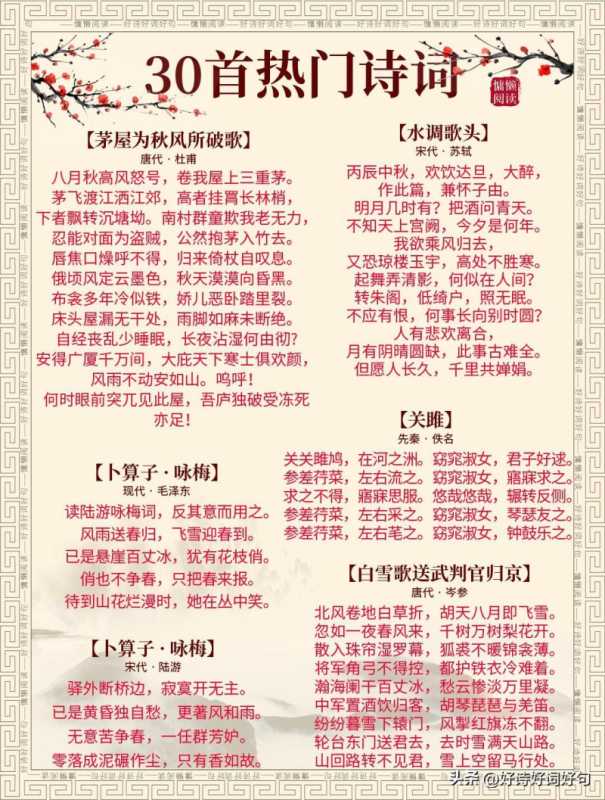 慵懒阅读 — 好诗好词好句
30首热门诗词
慵懒
阅读
【茅屋为秋风所破歌】
唐代 · 杜甫
八月秋高风怒号，卷我屋上三重茅。
茅飞渡江洒江郊，高者挂罥长林梢，
下者飘转沉塘坳。南村群童欺我老无力，
忍能对面为盗贼，公然抱茅入竹去。
唇焦口燥呼不得，归来倚杖自叹息。
俄顷风定云墨色，秋天漠漠向昏黑。
布衾多年冷似铁，娇儿恶卧踏里裂。
床头屋漏无干处，雨脚如麻未断绝。
自经丧乱少睡眠，长夜沾湿何由彻？
安得广厦千万间，大庇天下寒士俱欢颜，
风雨不动安如山。呜呼！
何时眼前突兀见此屋，吾庐独破受冻死
亦足！
【卜算子 · 咏梅】
现代 · 毛泽东
读陆游咏梅词，反其意而用之。
风雨送春归，飞雪迎春到。
已是悬崖百丈冰，犹有花枝俏。
俏也不争春，只把春来报。
待到山花烂漫时，她在丛中笑。
【卜算子 · 咏梅】
宋代 · 陆游
驿外断桥边，寂寞开无主。
已是黄昏独自愁，更著风和雨。
无意苦争春，一任群芳妒。
零落成泥碾作尘，只有香如故。
【水调歌头】
宋代 · 苏轼
丙辰中秋，欢饮达旦，大醉，
作此篇，兼怀子由。
明月几时有？把酒问青天。
不知天上宫阙，今夕是何年。
我欲乘风归去，
又恐琼楼玉宇，高处不胜寒。
起舞弄清影，何似在人间？
转朱阁，低绮户，照无眠。
不应有恨，何事长向别时圆？
人有悲欢离合，
月有阴晴圆缺，此事古难全。
但愿人长久，千里共婵娟。
【关雎】
先秦 · 佚名
关关雎鸠，在河之洲。窈窕淑女，君子好逑。
参差荇菜，左右流之。窈窕淑女，寤寐求之。
求之不得，寤寐思服。悠哉悠哉，辗转反侧。
参差荇菜，左右采之。窈窕淑女，琴瑟友之。
参差荇菜，左右芼之。窈窕淑女，钟鼓乐之。
【白雪歌送武判官归京】
唐代 · 岑参
北风卷地白草折，胡天八月即飞雪。
忽如一夜春风来，千树万树梨花开。
散入珠帘湿罗幕，狐裘不暖锦衾薄。
将军角弓不得控，都护铁衣冷难着。
瀚海阑干百丈冰，愁云惨淡万里凝。
中军置酒饮归客，胡琴琵琶与羌笛。
纷纷暮雪下辕门，风掣红旗冻不翻。
轮台东门送君去，去时雪满天山路。
山回路转不见君，雪上空留马行处。
头条 @好诗好词好句